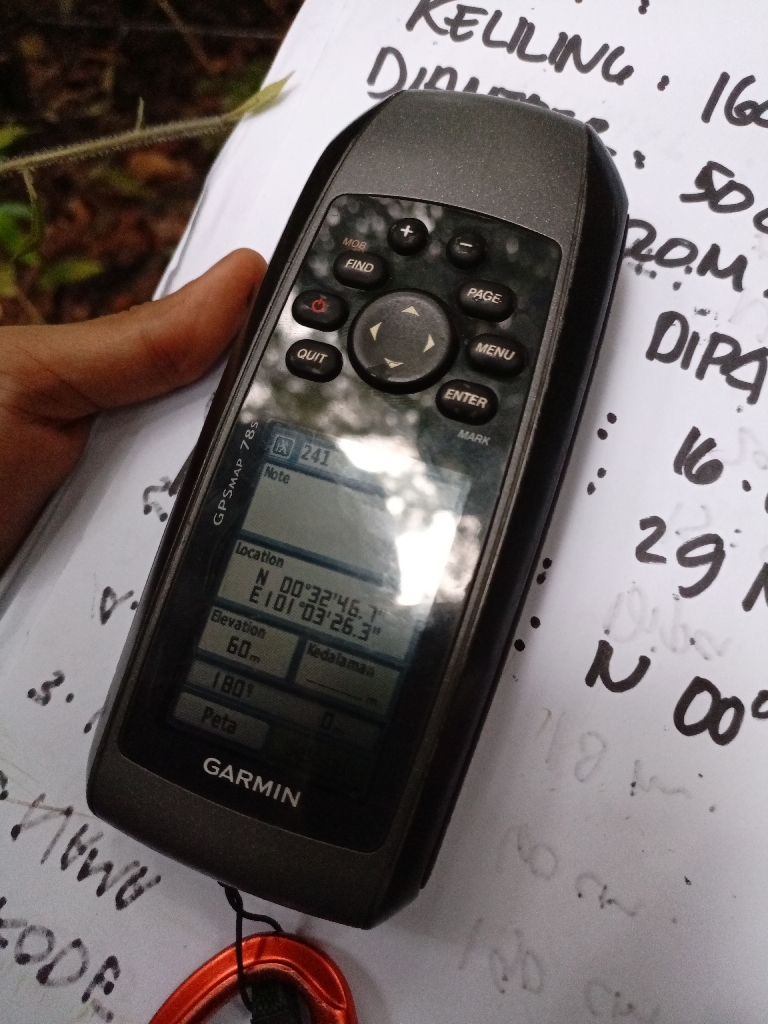 KELILING : 160
DIAMETER : 50
20M
DIPA
16.
29
N 00°
MOB
FIND
+
-
PAGE
QUIT
MENU
ENTER
MARK
GPSMAP 78s
241
Note
Location
N 00°32'46.7"
E101°03'26.3"
Elevation
60m
Kedalaman
_______m
180°
0m
Peta
GARMIN
3.
NAMA
KODE